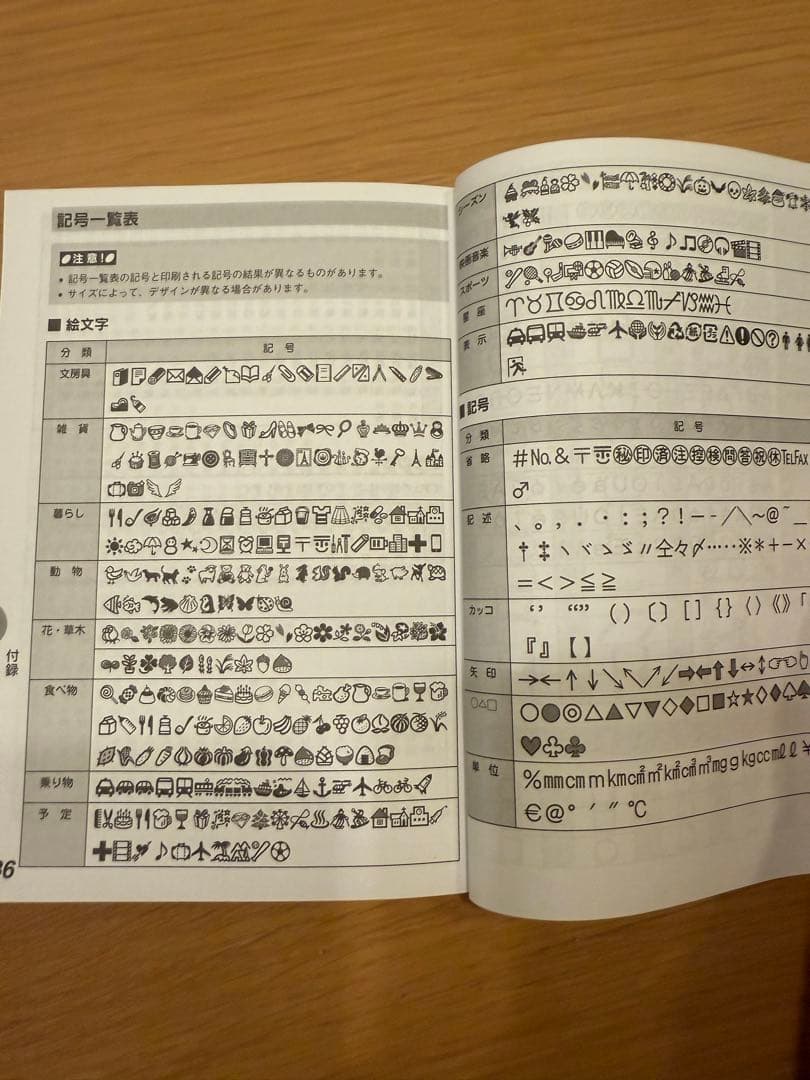 記号一覧表
注意!
• 記号一覧表の記号と印刷される記号の結果が異なるものがあります。
• サイズによって、デザインが異なる場合があります。
■ 絵文字
分 類 記 号
文房具
雑 貨
暮らし
動 物
花・草木
食べ物
乗り物
予 定
付録
シーズン
映画音楽
スポーツ
星 座
♈♉♊♋♌♍♎♏♐♑♒♓
表 示
■ 記号
分 類 記 号
省 略
# No. & 〒 ㊙ ㊞ 済 注 控 検 問 答 ㊗ ㊡ TEL FAX
♂
記 述
、。，．・：；？！ー-／＼～@~_
†‡ヽヾゝゞ〃仝々〆…‥※*＋－×
＝＜＞≦≧
カッコ
‘’ “” （） 〔〕 ［］ ｛｝ 〈〉 《》 「
『』【】
矢 印
→←↑↓
○△□
○●◎△▲▽▼◇◆□■☆★
♥♧♣
単 位
% mm cm m km cm² m² km² cm³ m³ mg g kg cc mℓ ℓ ¥
€ @ ° ′ ″ ℃